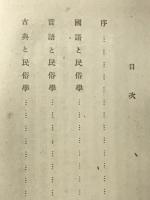 目次
序……………………
國語と民俗學……………………
言語と民俗學……………………
古典と民俗學……………………